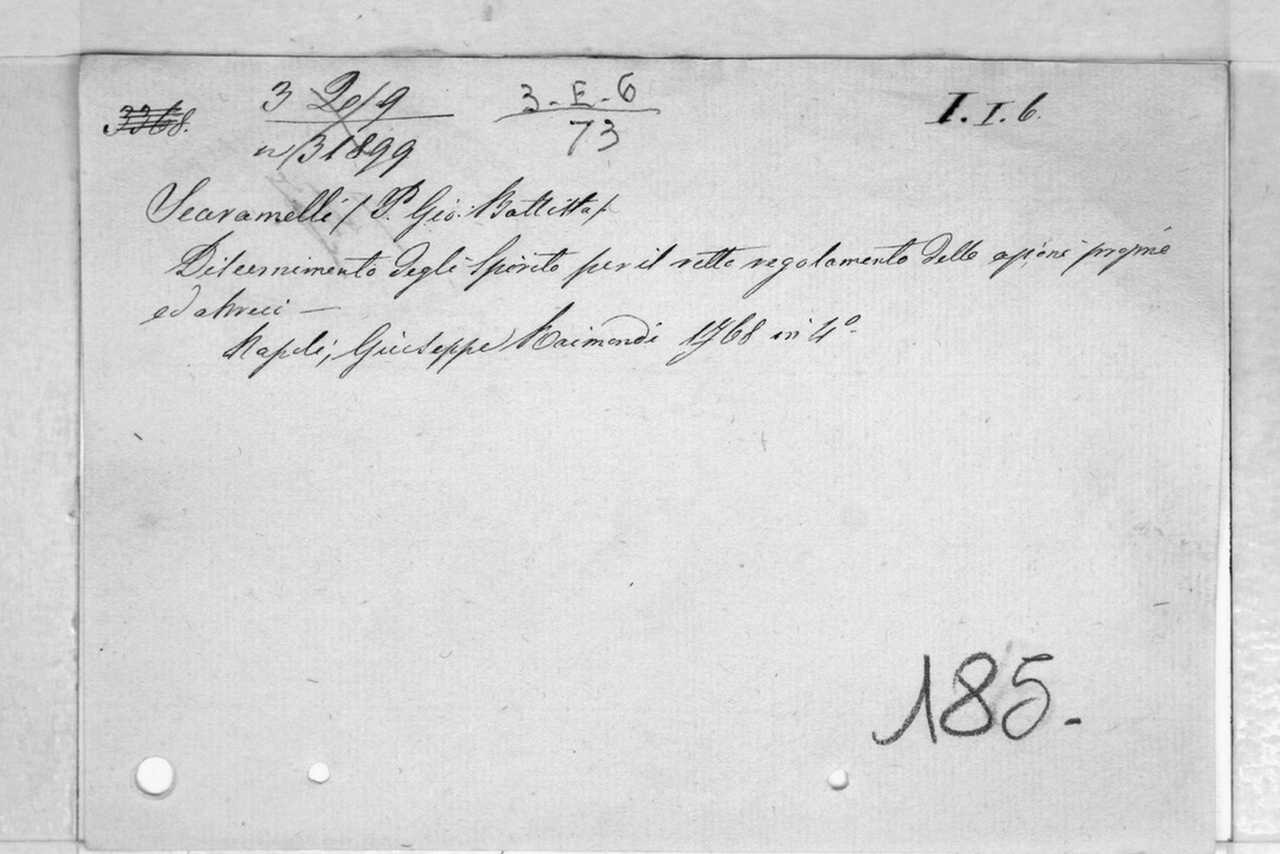 3368.
3 20/9
n/31899
3-E-6
73
I. I. 6.
Scaramelli / P. Gio: Battista/.
Discernimento degli Spirito per il retto regolamento delle azioni proprie
ed altrui —
Napoli, Giuseppe Raimondi 1768 in 4º
185.